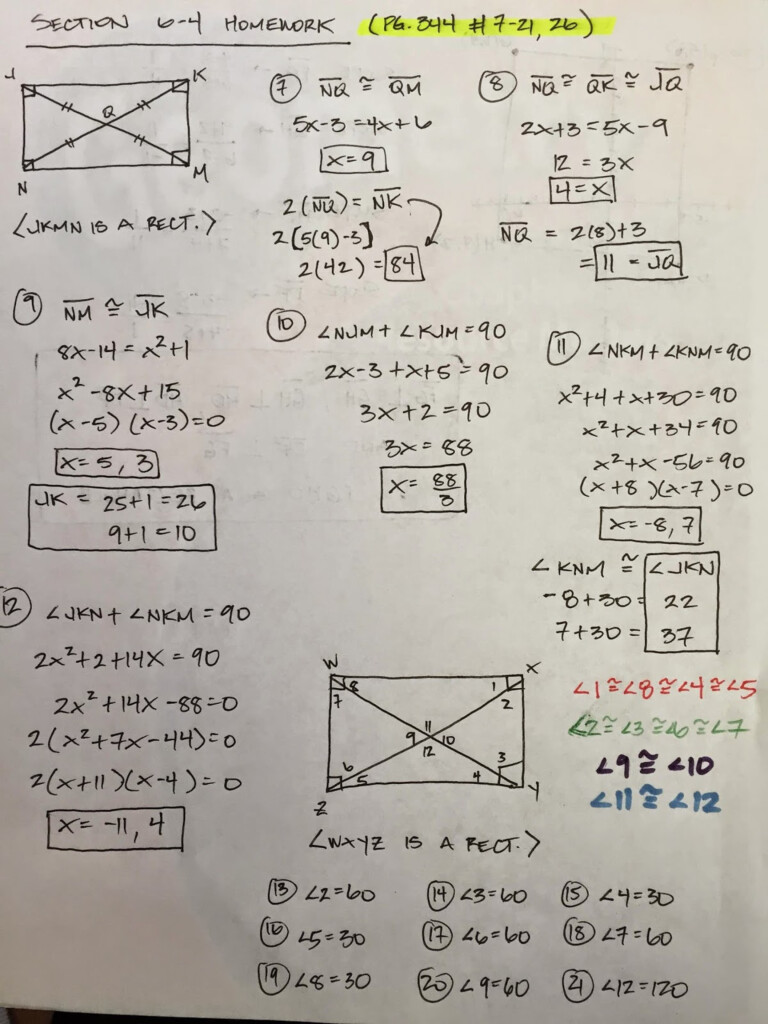 SECTION 6-4 HOMEWORK (PG. 344 #7-21, 26)
J K
Q
N M
<JKMN IS A RECT.>
⑦ NQ ≅ QM
5x-3=4x+6
x=9
2(NQ) = NK
2[5(9)-3]
2(42) = 84
⑧ NQ ≅ QK ≅ JQ
2x+3=5x-9
12=3x
4=x
NQ = 2(8)+3
= 11 = JQ
⑨ NM ≅ JK
8x-14=x²+1
x²-8x+15
(x-5)(x-3)=0
x=5, 3
JK = 25+1=26
9+1=10
⑩ ∠NJM+∠KJM=90
2x-3+x+5=90
3x+2=90
3x=88
x=88/3
⑪ ∠NKM+∠KNM=90
x²+4+x+30=90
x²+x+34=90
x²+x-56=90
(x+8)(x-7)=0
x=-8, 7
∠KNM ≅ ∠JKN
-8+30= 22
7+30= 37
⑫ ∠JKN+∠NKM=90
2x²+2+14x=90
2x²+14x-88=0
2(x²+7x-44)=0
2(x+11)(x-4)=0
x=-11, 4
W X
8 1
7 2
11
9 10
12
6 3
5 4
Z Y
<WXYZ IS A RECT.>
∠1≅∠8≅∠4≅∠5
∠2≅∠3≅∠6≅∠7
∠9≅∠10
∠11≅∠12
⑬ ∠2=60 ⑭ ∠3=60 ⑮ ∠4=30
⑯ ∠5=30 ⑰ ∠6=60 ⑱ ∠7=60
⑲ ∠8=30 ⑳ ∠9=60 ㉑ ∠12=120